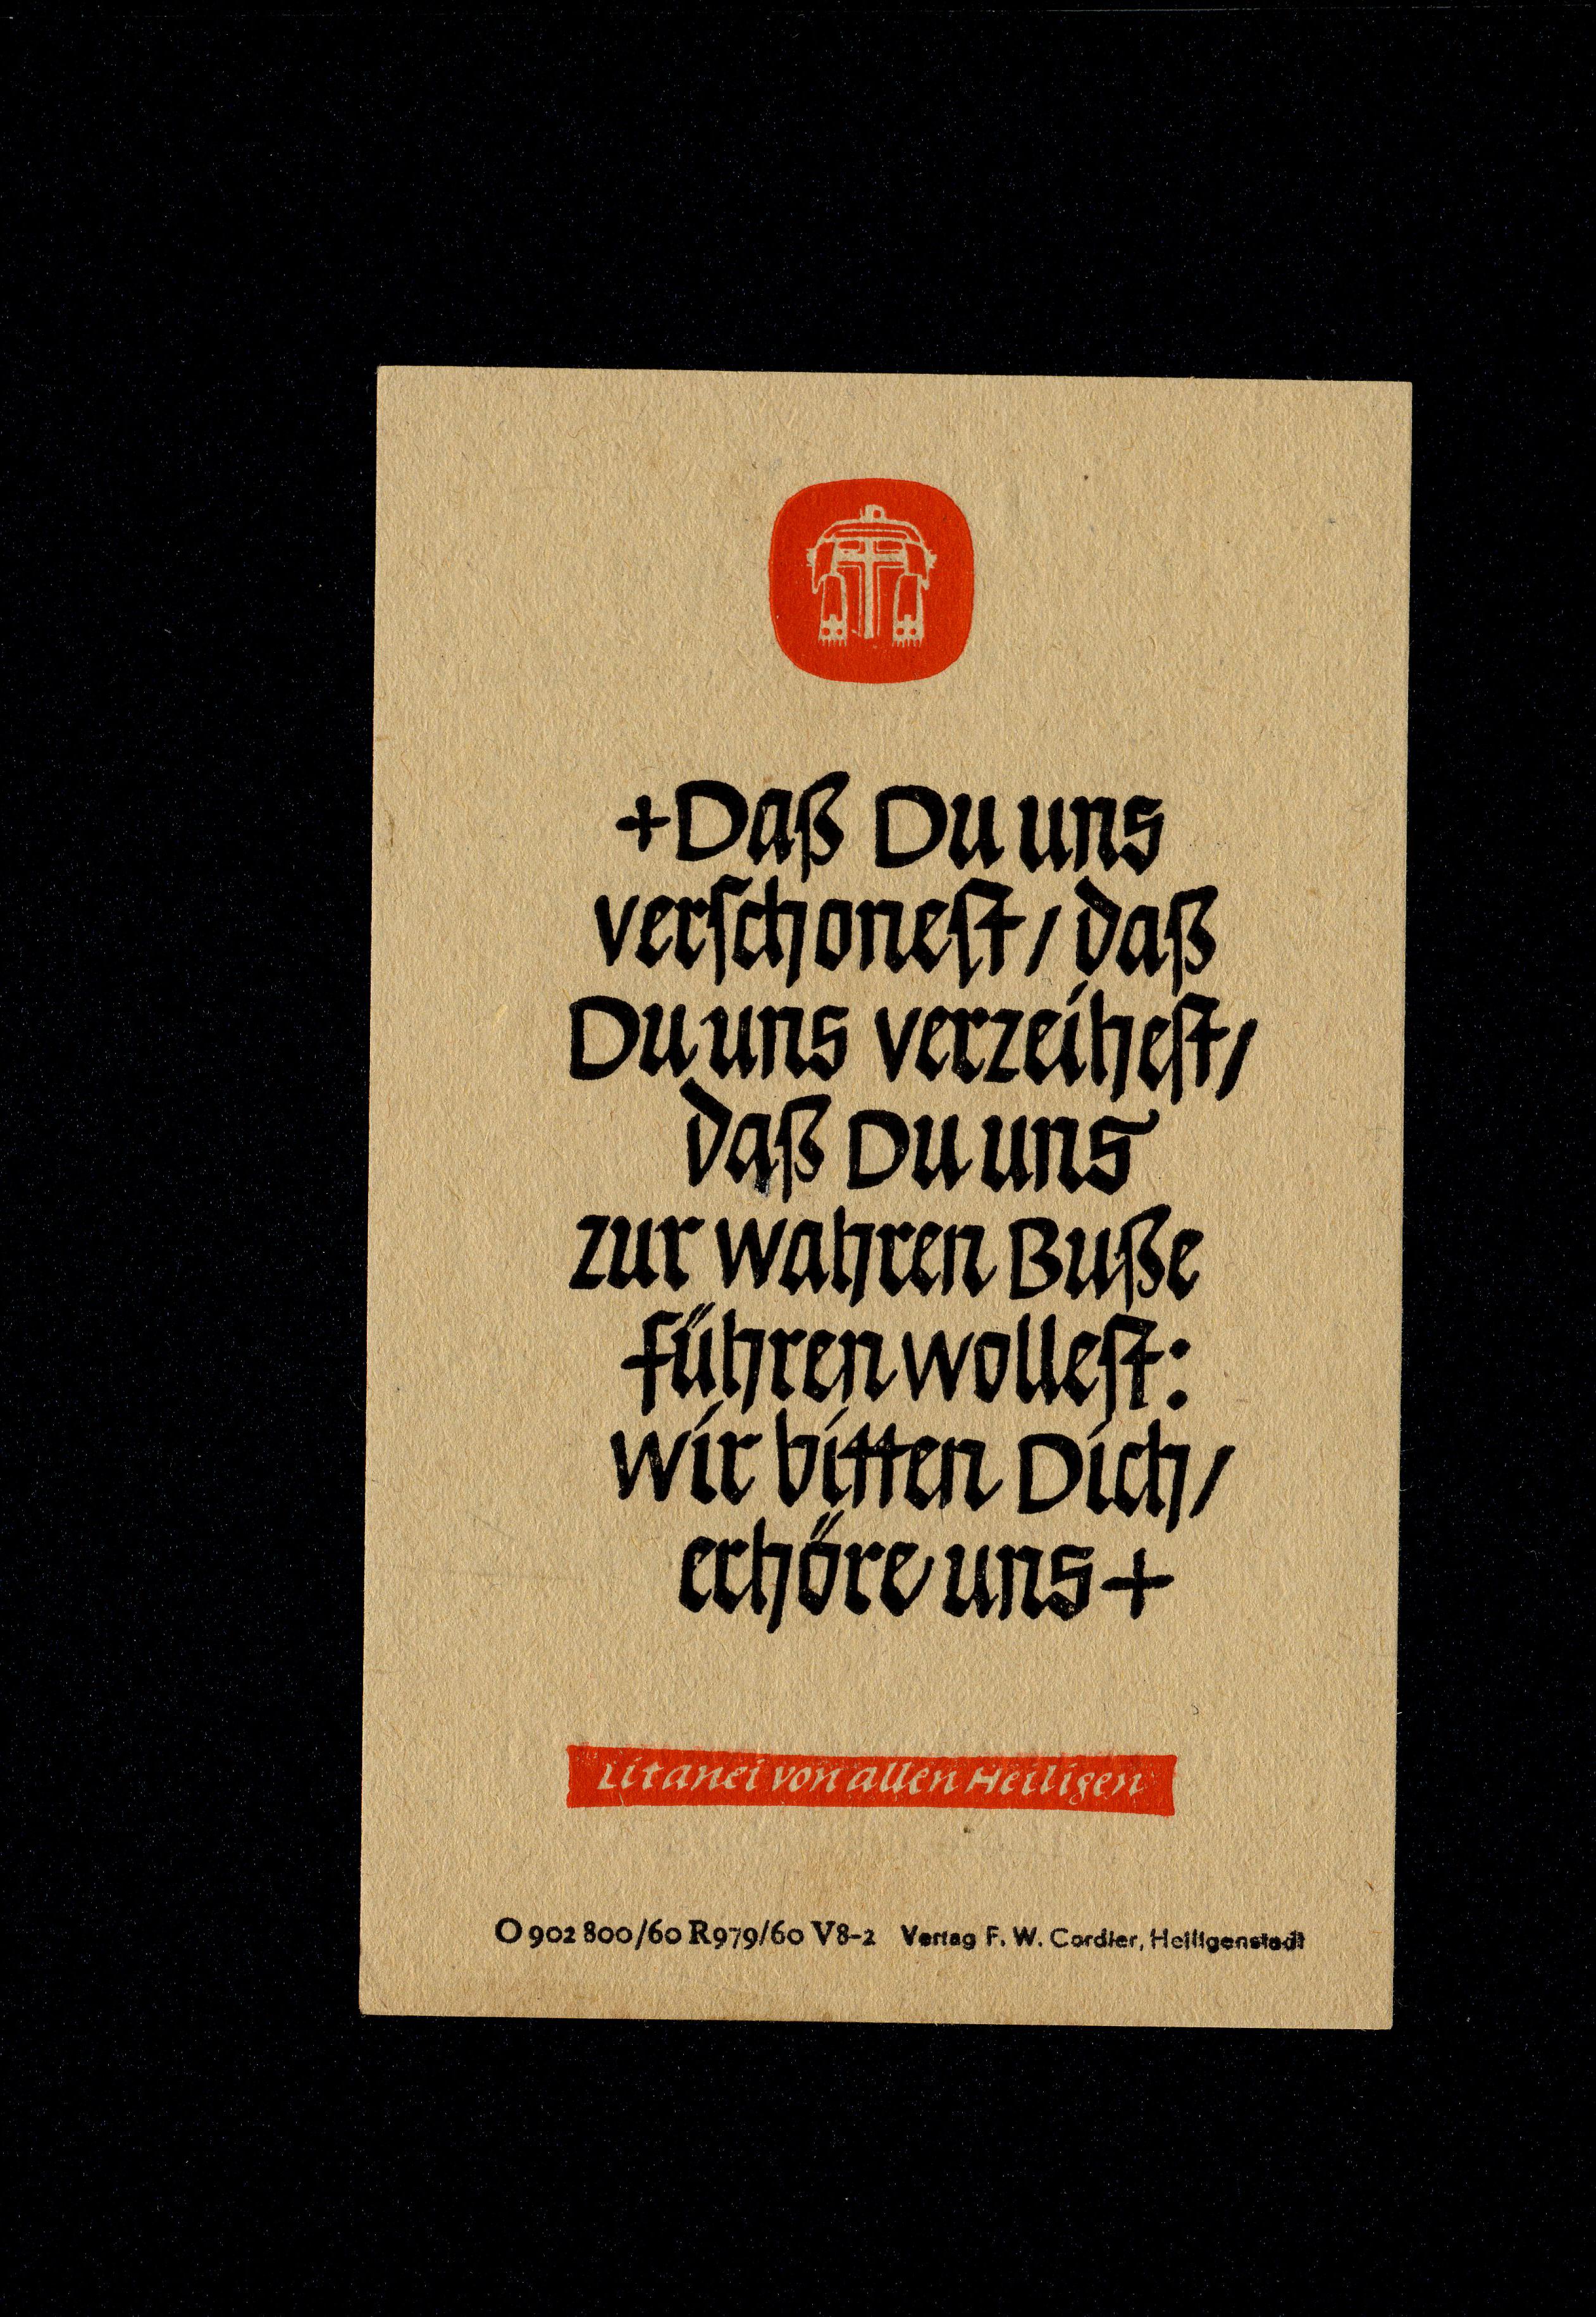 +Daß Du uns
verschonest/daß
Du uns verzeihest/
daß Du uns
zur wahren Buße
führen wollest:
wir bitten Dich/
erhöre uns+
Litanei von allen Heiligen
O 902 800/60 R979/60 V8-2 Verlag F. W. Cordier, Heiligenstadt